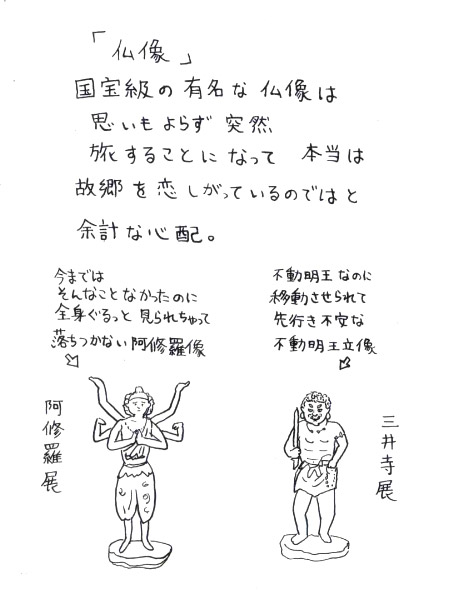 「仏像」
国宝級の有名な仏像は
思いもよらず突然
旅することになって 本当は
故郷を恋しがっているのではと
余計な心配。
今までは
そんなことなかったのに
全身ぐるっと見られちゃって
落ちつかない阿修羅像
不動明王なのに
移動させられて
先行き不安な
不動明王立像
阿修羅展
三井寺展